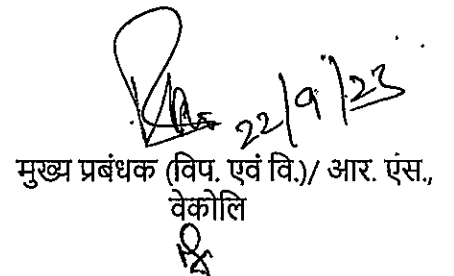 22/9/23
मुख्य प्रबंधक (विप. एवं वि.)/ आर. एंस.,
वेकोलि